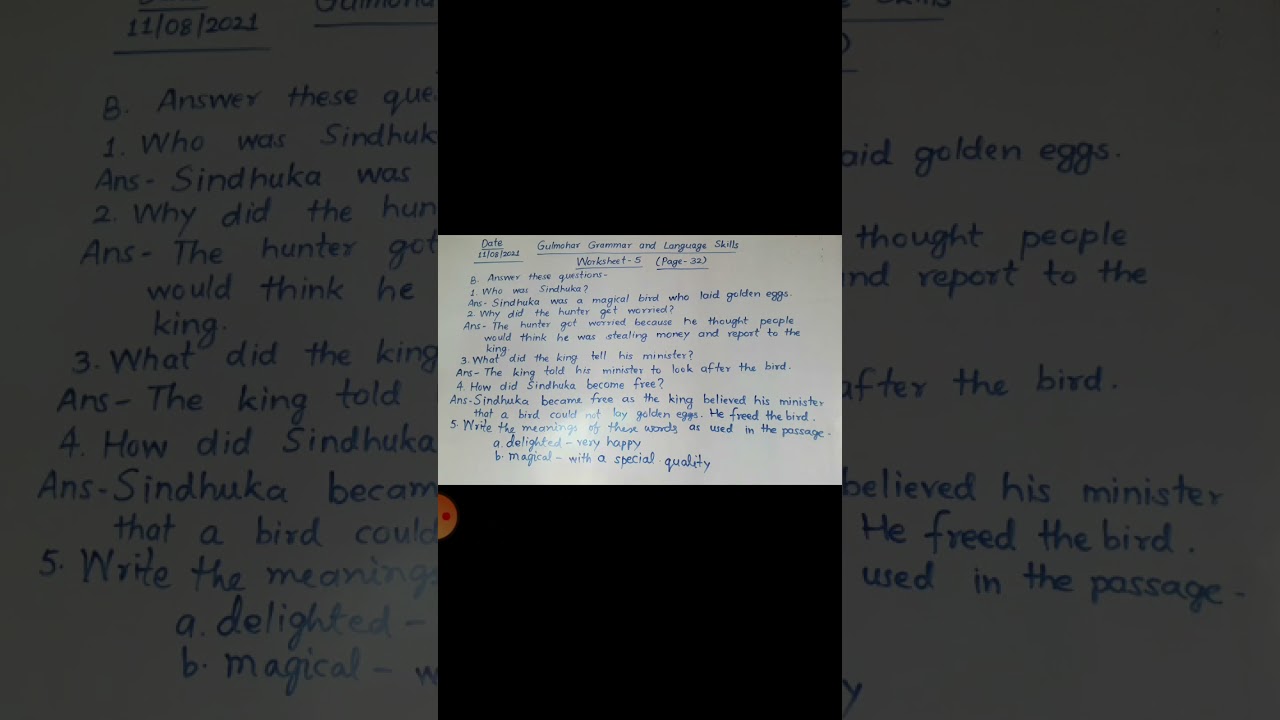 Date
11/08/2021
Gulmohar Grammar and Language Skills
Worksheet-5 (Page-32)
B. Answer these questions-
1. Who was Sindhuka?
Ans- Sindhuka was a magical bird who laid golden eggs.
2. Why did the hunter get worried?
Ans- The hunter got worried because he thought people
would think he was stealing money and report to the
king.
3. What did the king tell his minister?
Ans- The king told his minister to look after the bird.
4. How did Sindhuka become free?
Ans- Sindhuka became free as the king believed his minister
that a bird could not lay golden eggs. He freed the bird.
5. Write the meanings of these words as used in the passage-
a. delighted - very happy
b. magical - with a special quality